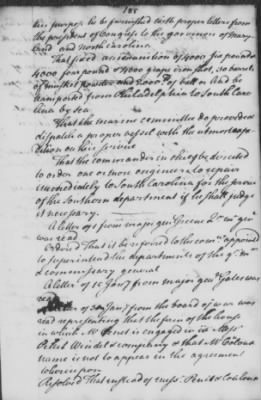 his purpose he be furnished with proper letters from
the president of Congress to the governors of Mary
land and North Carolina
That fixed ammunition of 4000 six pound
4000 four pound & 4000 grape iron shot, 20 barrels
of musket powder and 2000 of ball or lead be
transported from Philadelphia to South Caro
lina by sea.
That the marine committee do provide &
dispatch a proper vessel with the utmost expe
dition on this service
That the commander in chief be directed
to order one or two engineers to repair
immediately to South Carolina for the service
of the Southern department if he shall judge
it necessary.
A letter of 1 from major gen Greene Q. M. gen
was read
Ordered That it be referred to the com appointed
to superintend the departments of the q. m
& commissary general
A letter of 15 Jan from major gen Gates was
read
of 3 Jan from the board of war was
read representing that the firm of the house
in which M Penet is engaged in is Mess
Penet Windel & company & that M Couloux
name is not to appear in the agreement
whereupon
Resolved That instead of mess Penet & Couloux